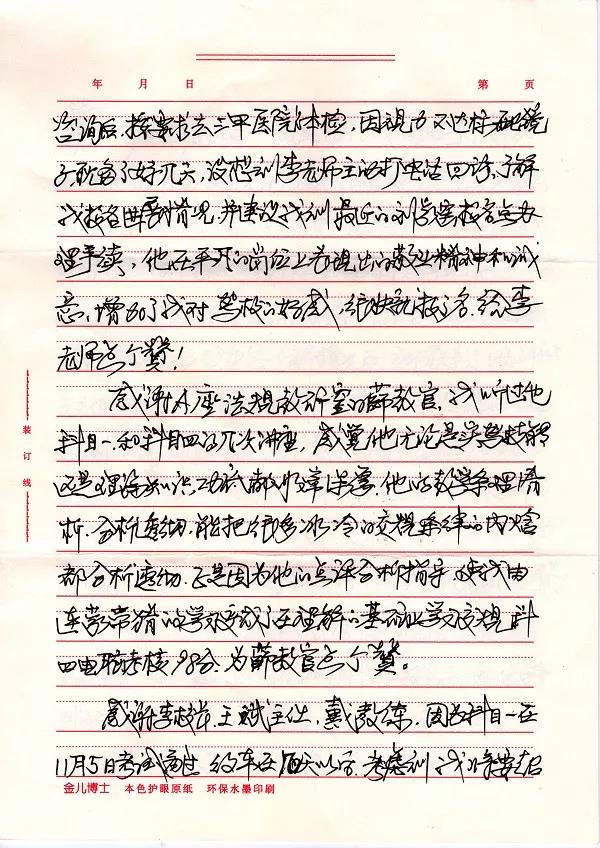 年 月 日 第 页
咨询后,按要求去三甲医院体检,因视力不达标配镜
子耽搁了好几天,没想到李老师主动打电话回访,了解
我报名体检情况,并建议我到最近的刘家窑报名点办
理手续,他在平凡的岗位上表现出的敬业精神和诚
意,增加了我对驾校的好感,很快就报了名.给李
老师点个赞!
感谢A座法规教研室的薛教官,我听过他
科目一和科目四的几次讲座,感觉他无论是实驾技能
还是理论知识,功底都非常深厚.他的教学条理清
析.分析透彻.能把很多冰冷的交规条律的内容
都分析透彻.正是因为他的点评分析指导,使我由
连蒙带猜的学习变成了在理解的基础上学习交规,科
四电脑考核98分.为薛教官点个赞。
感谢李校长.王斌主任,戴教练,因为科目一在
11月5日考试通过 约车在 天以后.考虑到我
装订线
金儿博士 本色护眼原纸 环保水墨印刷